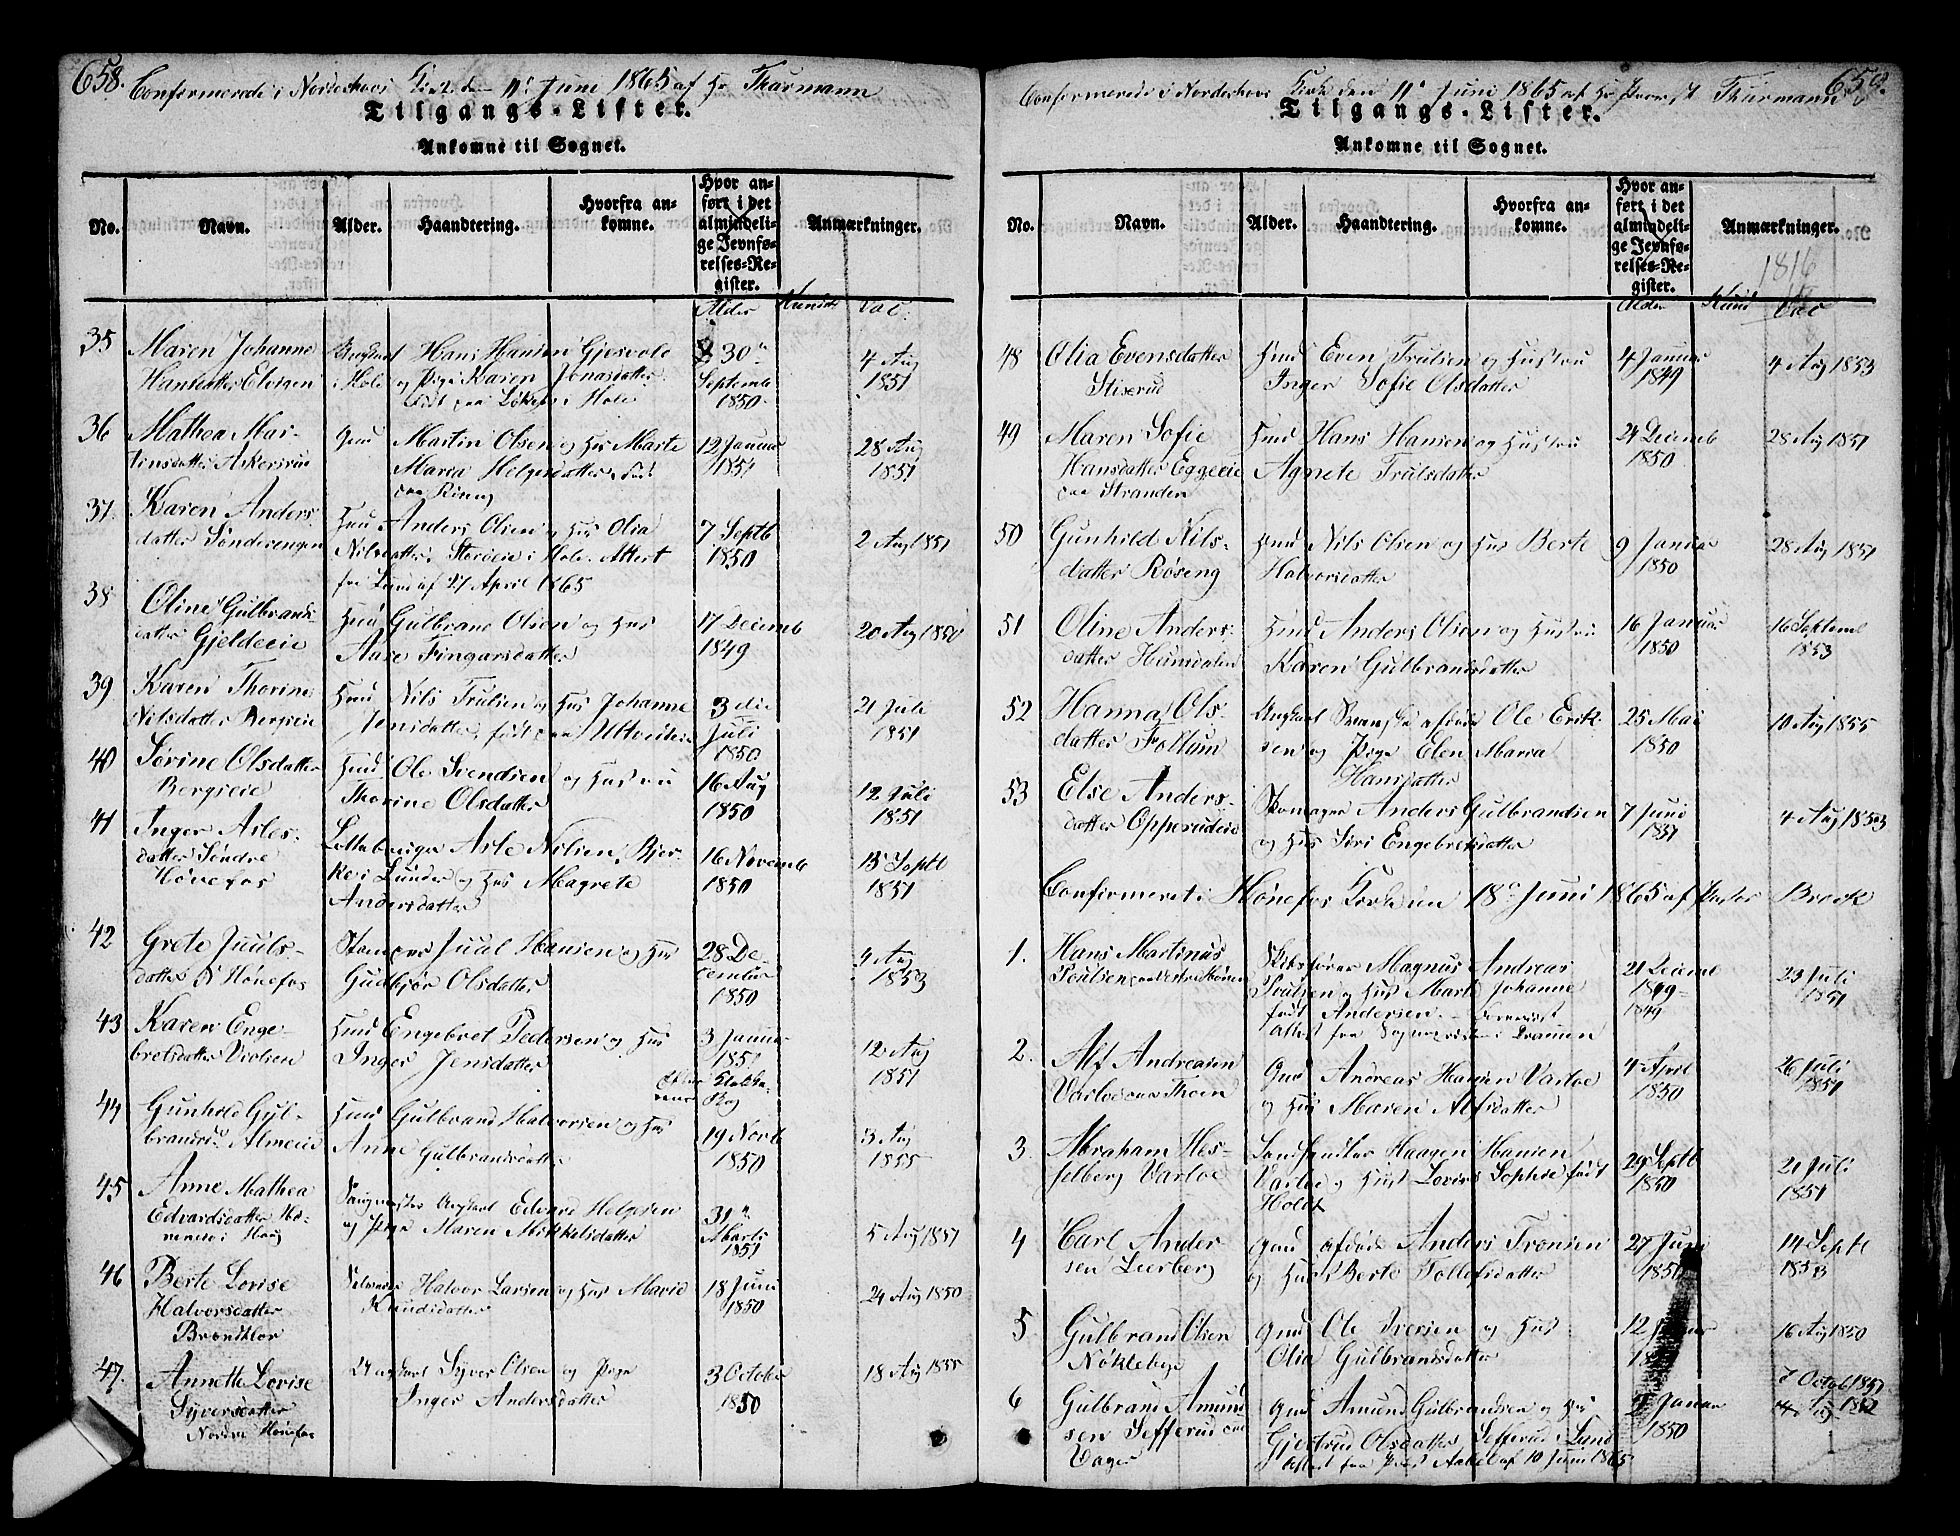 658.
Confirmerede i Norderhovs Kirke den 11te Juni 1865 af Hr Thurmann
Tilgangs-Lister.
Ankomne til Sognet.
No. Navn. Alder. Haandtering. Hvorfra ankomne. Hvor anført i det almindelige Jevnførelses-Register. Anmærkninger.
Alder Kundsk Vac.
35 Maren Johanne
Hansdatter Elvigen
Ungkarl Hans Hansen Gjesvold
i Hole og Pige Karen Jonasdatter
født paa Løken i Hole
30te
Septemb
1850
4 Aug
1851
36 Mathea Mar-
tinsdatter Askerud
Gmd Martin Olsen og Hus Marte
Maria Helgesdatter. født
paa Ring
12 Januar
1851
28 Aug
1851
37. Karen Anders-
datter Sønderengen
Hmd Anders Olsen og Hus Olia
Nilsdatter Storøeie i Hole. Attest
fra Lund af 27 April 1865
7 Septb
1850
2 Aug 1851
38 Oline Gulbrands
datter Gjeldeeie
Hmd Gulbrand Olsen og Hus
Aase Fingarsdatter
17 Decemb
1849
20 Aug 1850
39 Karen Thorine
Nilsdatter Bergseie
Hmd Nils Trulsen og Hus Johanne
Jensdatter, født paa Utvedeie
3 die
Juli
1850
21 Juli
1851
40 Sørine Olsdatter
Bergseie
Hmd Ole Svendsen og Hustru
Thorine Olsdatter
16 Aug
1850
12 Juli
1851
41 Inger Asles-
datter Søndre
Hønefos
Asle Nilsen, Bjer-
ke i Lunder og Hus Magrete
Andersdatter
16 Novemb
1850
15 Septb
1851
42 Grete Juuls-
datter N Hønefos
Juul Hansen og Hus
Gudbjør Olsdatter
28 De-
cember
1850
4 Aug
1853
43 Karen Enge-
bretsdatter Veolsen
Hmd Engebret Pedersen og Hus
Inger Jensdatter
3 Januar
1851
12 Aug
1851
44 Gunhild Gul-
brandsd Almeeie
Hmd Gulbrand Halvorsen og Hus
Anne Gulbrandsdatter
19 Novb
1850
3 Aug
1855
45 Anne Mathea
Edvardsdatter
i Haug
Ungkarl Edvard Helgesen
og Pige Maren Mikkelsdatter
31te
Marts
1851
5 Aug 1851
46 Berte Lovise
Halvorsdatter
Brøndklor
Halvor Larsen og Hus Marie
Knudsdatter
18 Juni
1850
24 Aug 1850
47. Annette Lovise
Syversdatter
Nordre Hønefos
Ungkarl Syver Olsen og Pige
Inger Andersdatter
3 October
1850
18 Aug 1855
659.
Confirmerede i Norderhovs Kirke den 11te Juni 1865 af Hr Provst Thurmann
Tilgangs-Lister.
Ankomne til Sognet.
No. Navn. Alder. Haandtering. Hvorfra ankomne. Hvor anført i det almindelige Jevnførelses-Register. Anmærkninger.
1816
Alder Kund Vac
48 Olia Evensdatter
Stixrud
Hmd Even Trulsen og Hustru
Inger Sofie Olsdatter
4 Januar
1849
4 Aug 1853
49 Maren Sofie
Hansdatter Eggeeie
paa Stranden
Hmd Hans Hansen og Hustru
Agnete Trulsdatter
24 Decemb
1850
28 Aug 1851
50 Gunhild Nils-
datter Røseng
Hmd Nils Olsen og Hus Berte
Halvorsdatter
9 Januar
1850
28 Aug 1851
51 Oline Anders-
datter Humdalen
Hmd Anders Olsen og Hustru
Karen Gulbrandsdatter
16 Januar
1850
16 Septemb
1853
52 Hanna Ols-
datter Follum
Ungkarl Svenske afdøde Ole Erik-
sen og Pige Elen Maria
Hansdatter
25 Mai
1850
10 Aug 1855
53 Else Anders-
datter Opperudeie
Skomager Anders Gulbrandsen
og Hus Siri Engebretsdatter
7 Juni
1851
4 Aug 1853
Confirmeret i Hønefos Kirke den 18de Juni 1865 af Pastor Brock
1. Hans Martinus
Trulsen paa Vestre Hønen
Skibsfører Magnus Andreas
Trulsen og Hus Marte Johanne
født Andersen
Attest fra Sognepresten i Drammen
21 Decemb
1849
23 Juli
1851
2. Alf Andreasen
Varloe paa Thoen
Gmd Andreas Hansen Varloe
og Hus Maren Alfsdatter
4 April
1850
26 Juli
1851
3. Abraham Hes-
selberg Varloe
Landhandler Haagen Hansen
Varloe og Hus Lovise Sophie født
Holdt
29 Septb
1850
21 Juli
1851
4 Carl Ander
sen Leerberg
Gmd afdøde Anders Tronsen
og Hus Berte Tollefsdatter
27 Juni
1850
14 Septb
1853
5 Gulbrand Olsen
Nøklebye
Gmd Ole Iversen og Hus
Olia Gulbrandsdatter
12 Januar
16 Aug 1850
6 Gulbrand Amund-
sen Sefferud paa
Vager
Gmd Amund Gulbrandsen og Hus
Gjertrud Olsdatter Sefferud i Lund
Attest fra Prest Aabel af 10 Juni 1865
Januar
1850
7 Octob 1851